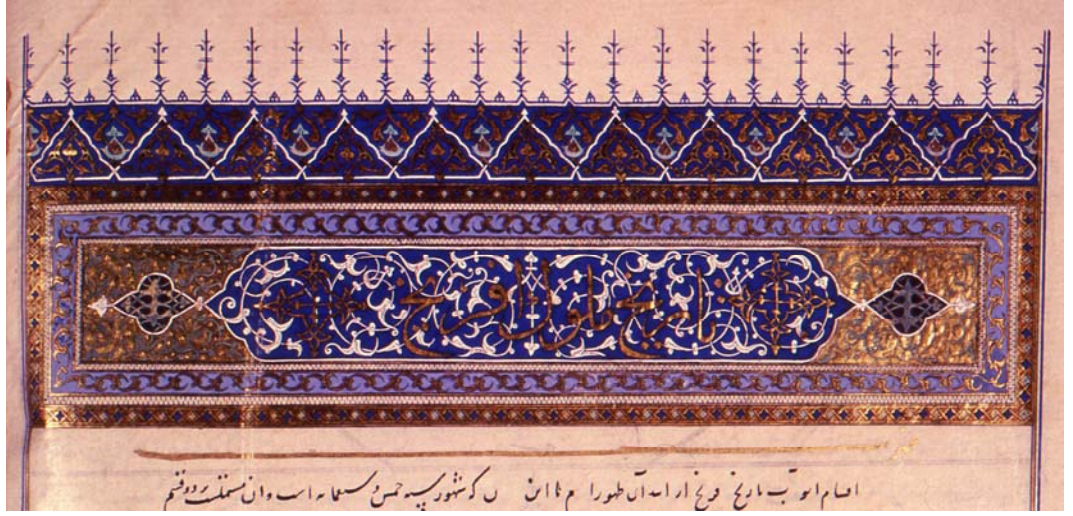 تاریخ ملوک افرنج
اقسام تاریخ فرنج از ابتداء آن تا این که شهور سنه خمس و سبعمایه است وان مشتملست بر دو قسم